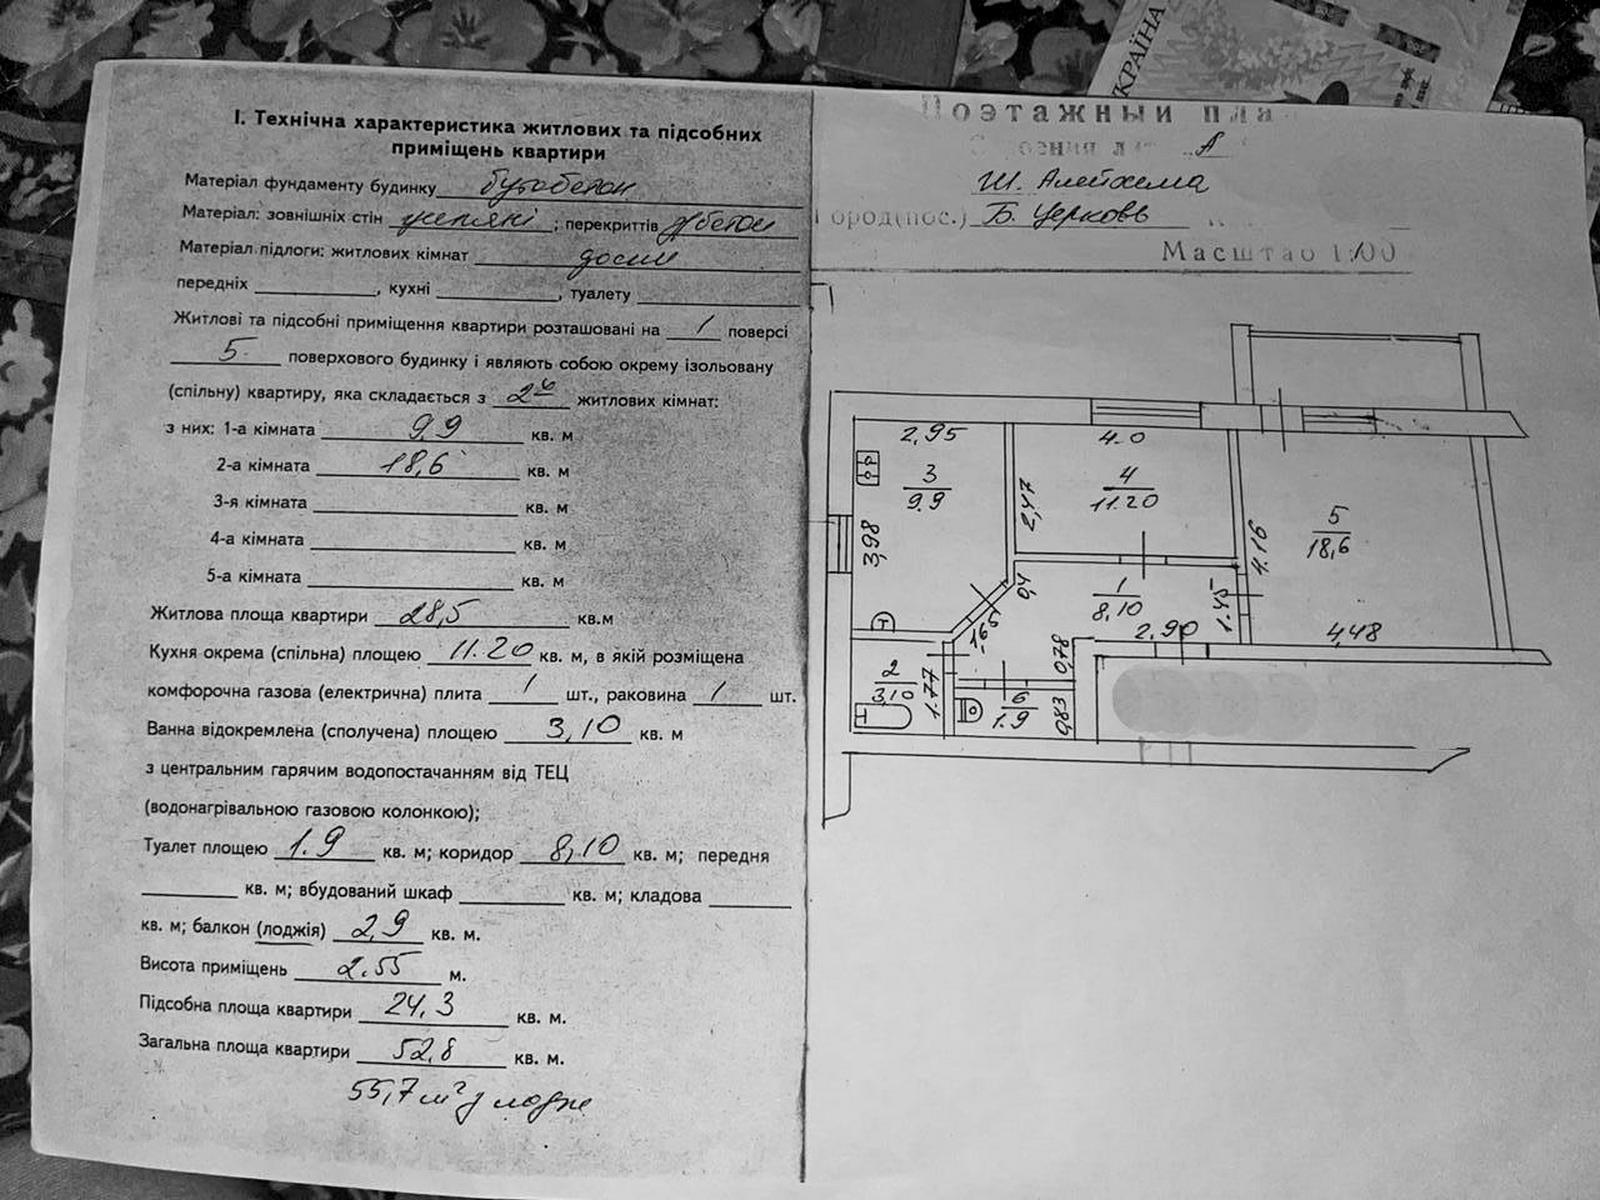 І. Технічна характеристика житлових та підсобних
приміщень квартири
Матеріал фундаменту будинку бутобетон
Матеріал: зовнішніх стін цегляні ; перекриттів з/бетон
Матеріал підлоги: житлових кімнат дошки
передніх , кухні , туалету
Житлові та підсобні приміщення квартири розташовані на 1 поверсі
5 поверхового будинку і являють собою окрему ізольовану
(спільну) квартиру, яка складається з 2х житлових кімнат:
з них: 1-а кімната 9,9 кв. м
2-а кімната 18,6 кв. м
3-я кімната кв. м
4-а кімната кв. м
5-а кімната кв. м
Житлова площа квартири 28,5 кв.м
Кухня окрема (спільна) площею 11.20 кв. м, в якій розміщена
комфорочна газова (електрична) плита 1 шт., раковина 1 шт.
Ванна відокремлена (сполучена) площею 3,10 кв. м
з центральним гарячим водопостачанням від ТЕЦ
(водонагрівальною газовою колонкою);
Туалет площею 1.9 кв. м; коридор 8,10 кв. м; передня
кв. м; вбудований шкаф кв. м; кладова
кв. м; балкон (лоджія) 2,9 кв. м.
Висота приміщень 2.55 м.
Підсобна площа квартири 24,3 кв. м.
Загальна площа квартири 52,8 кв. м.
55,7 м² з лодж
УКРАЇНА
Поэтажный пла
оения лит А
Ш. Алейхема
Город(пос.) Б. Церковь
Масштаб 1:100
2,95
4.0
3
9.9
2,47
4
11.20
3,98
4.16
5
18,6
0,4
1
8,10
1.45
1,65
2,90
4,48
0,78
2
3,10
1.77
6
1.9
0,83